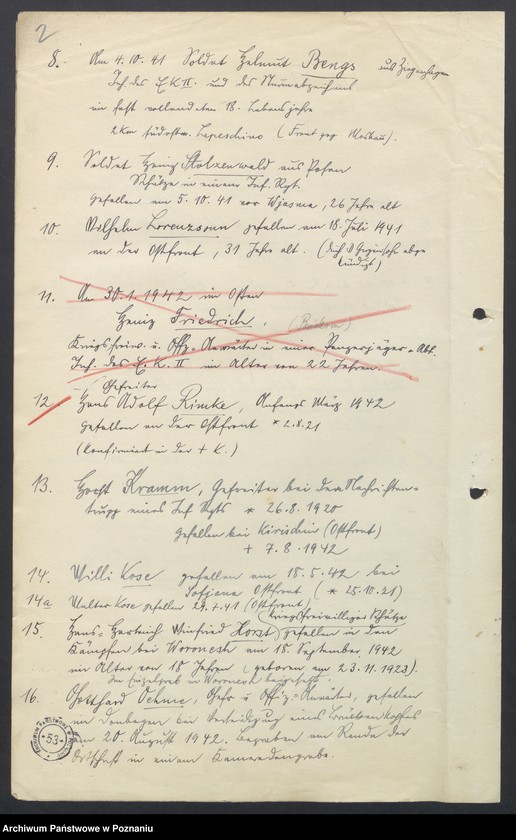 2
8. Am 4.10.41 Soldat Helmut Bengs aus Ziegenhagen
Inh. des E K II. und des Sturmabzeichens
im fast vollendeten 18. Lebensjahr
2 km südostw. Lepeschino (Front geg. Moskau).
9. Soldat Heinz Stolzenwald aus Posen
Schütze in einem Inf. Rgt.
gefallen am 5.10.41 vor Wjasma, 26 Jahre alt
10. Wilhelm Lorenzsonn gefallen am 18. Juli 1941
an der Ostfront, 31 Jahre alt.
11. Am 30.1.1942 im Osten
Heinz Friedrich,
Kriegsfreiw. u. Offz.-Anwärter in einer Panzerjäger-Abt.
Inh. des E.K. II im Alter von 22 Jahren.
Gefreiter
12. Hans Adolf Rimke, Anfangs März 1942
gefallen an der Ostfront * 2.8.21
(Konfirmiert in der + K.)
13. Horst Kramm, Gefreiter bei dem Nachrichten-
trupp eines Inf. Rgts * 26.8.1920
gefallen bei Kirischi (Ostfront)
+ 7.8.1942
14. Willi Kose gefallen am 18.5.42 bei
Ostfront (* 25.10.21)
14a Walter Kose gefallen 29.7.41 (Ostfront)
Kriegsfreiwilliger Schütze
15. Hans-Hartwich Winfried Horst gefallen in den
Kämpfen bei Woronesch am 18. September 1942
im Alter von 18 Jahren (geboren am 23.11.1923).
Im Einzelgrab in Woronesch beigesetzt.
16. Gotthard Oehme, Gefr. u. Offiz.-Anwärter, gefallen
im Donbogen bei Verteidigung eines Brückenkopfes
am 20. August 1942. Begraben am Rande der
Ortschaft in einem Kameradengrabe.
53
Archiwum Państwowe w Poznaniu